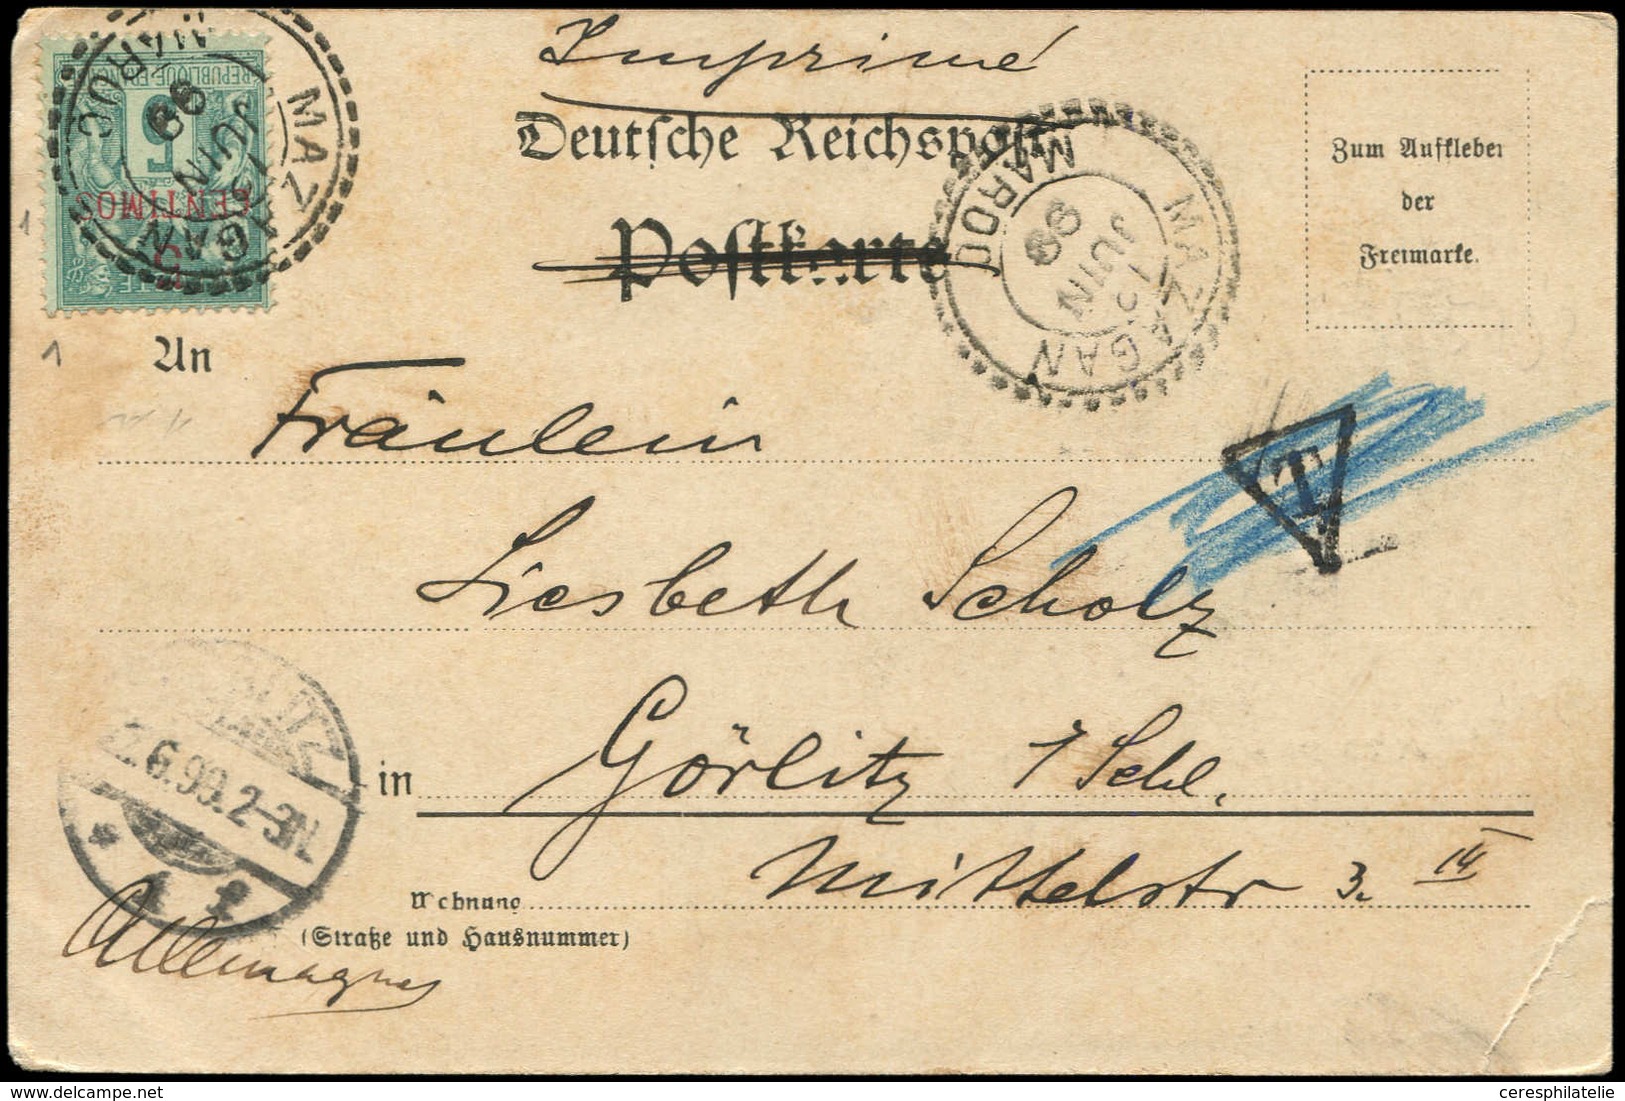 Imprimé
Deutsche Reichspost
Postkarte
Zum Aufkleben
der
Freimarke.
REPUBLIQUE FRANÇAISE
5
CENTIMOS
5
MAZAGAN
JUIN
99
MAROC
MAZAGAN
JUIN
99
MAROC
T
An
Fräulein
Liesbeth Scholz
in Görlitz i/Schl.
Mittelstr 3. III
Wohnung
(Straße und Hausnummer)
.6.99.2-3N.
Allemagne
ceresphilatelie